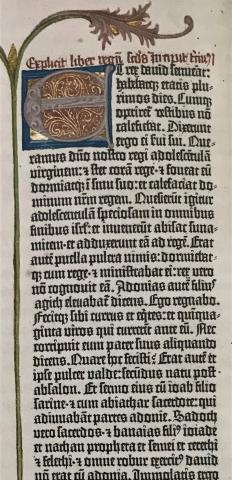 Explicit liber regū scd's Incipit tciuſ
T rex dauid ſenuerat:
habebatq; etatis pluri-
mos dies. Cumq;
operiret' veſtibus nō
calefiebat. Dixerunt
ergo ei ſui ſui. Que-
ramus dn̄o noſtro regi adoleſcētulā
virginem: ⁊ ſtet corā rege · ⁊ foueat eū
dormiatq; ī ſinu ſuo: et calefaciat do-
minum nr̄m regem. Queſierūt igitur
adoleſcentulam ſpecioſam in omnibus
finibus iſrl': et inuenerūt abiſag ſuna-
mitem · et adduxerunt eā ad regē. Erat
autē puella pulcra nimis: dormiebat-
q; cum rege · ⁊ miniſtrabat ei: rex vero
nō cognouit eā. Adonias autē filius
agith eleuabat' dicens. Ego regnabo.
Fecitq; ſibi currus et eq̄tes: et quīqua-
ginta viros qui currerēt ante eū. Nec
corripuit eum pater ſuus aliquando
dicens. Quare hoc feciſti? Erat autē et
ipſe pulcer valde: ſecūdus natu poſt
abſalon. Et ſermo eius cū ioab filio
ſaruie · ⁊ cum abiathar ſacerdote: qui
adiuuabāt partes adonie. Sadoch
vero ſacerdos · ⁊ banaias filiꝰ ioiade
et nathan propheta et ſemei et cerethi
⁊ felethi · ⁊ omne robur exercitꝰ dauid
nō erat cū adonia. Immolatis ergo